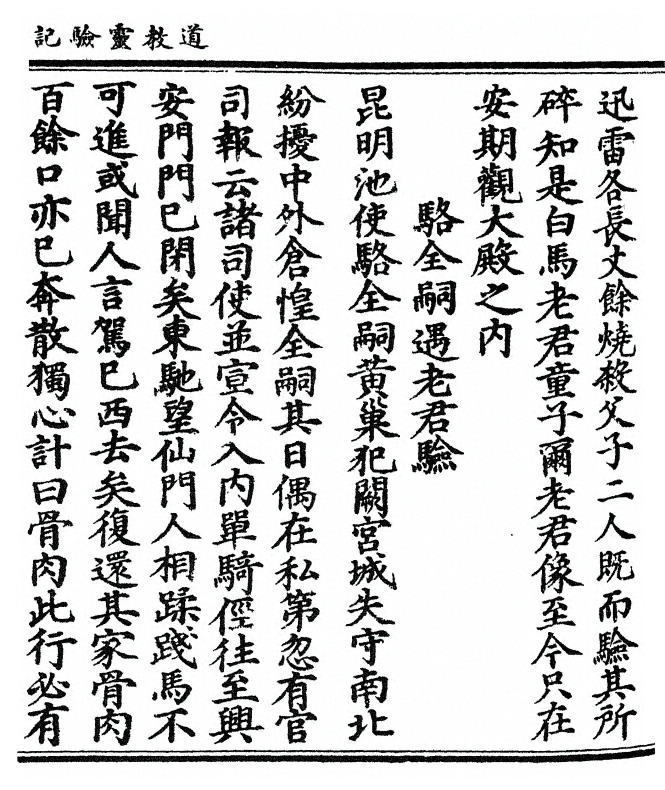 道教靈驗記
迅雷各長丈餘燒殺父子二人既而驗其所
碎知是白馬老君童子爾老君像至今只在
安期觀大殿之內
駱全嗣遇老君驗
昆明池使駱全嗣黃巢犯闕宮城失守南北
紛擾中外倉惶全嗣其日偶在私第忽有官
司報云諸司使並宣令入內單騎徑往至興
安門門巳閉矣東馳望仙門人相蹂踐馬不
可進或聞人言駕巳西去矣復還其家骨肉
百餘口亦巳奔散獨心計曰骨肉此行必有